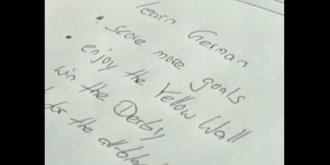 learn German
• score more goals
• enjoy the Yellow Wall
• win the Derby
for the